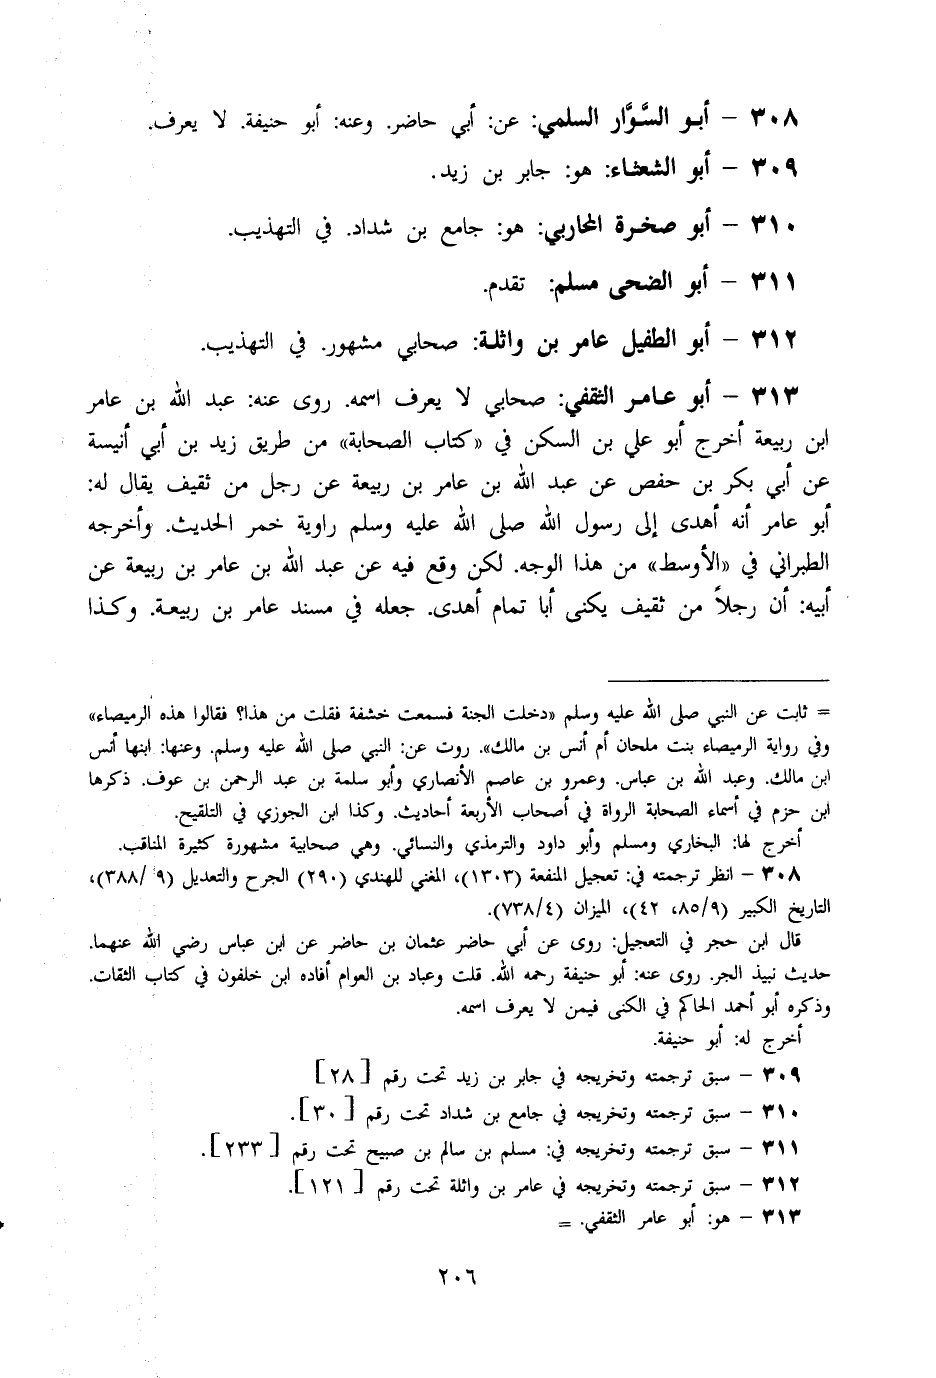 ٣٠٨ – أبو السَّوَّار السلمي: عن: أبي حاضر. وعنه: أبو حنيفة. لا يعرف.
٣٠٩ – أبو الشعثاء: هو: جابر بن زيد.
٣١٠ – أبو صخرة المحاربي: هو: جامع بن شداد. في التهذيب.
٣١١ – أبو الضحى مسلم: تقدم.
٣١٢ – أبو الطفيل عامر بن واثلة: صحابي مشهور. في التهذيب.
٣١٣ – أبو عامر الثقفي: صحابي لا يعرف اسمه. روى عنه: عبد الله بن عامر
ابن ربيعة أخرج أبو علي بن السكن في «كتاب الصحابة» من طريق زيد بن أبي أنيسة
عن أبي بكر بن حفص عن عبد الله بن عامر بن ربيعة عن رجل من ثقيف يقال له:
أبو عامر أنه أهدى إلى رسول الله صلى الله عليه وسلم راوية خمر الحديث. وأخرجه
الطبراني في «الأوسط» من هذا الوجه. لكن وقع فيه عن عبد الله بن عامر بن ربيعة عن
أبيه: أن رجلاً من ثقيف يكنى أبا تمام أهدى. جعله في مسند عامر بن ربيعة. وكذا
= ثابت عن النبي صلى الله عليه وسلم «دخلت الجنة فسمعت خشفة فقلت من هذا؟ فقالوا هذه الرميصاء»
وفي رواية الرميصاء بنت ملحان أم أنس بن مالك». روت عن: النبي صلى الله عليه وسلم. وعنها: ابنها أنس
ابن مالك. وعبد الله بن عباس. وعمرو بن عاصم الأنصاري وأبو سلمة بن عبد الرحمن بن عوف. ذكرها
ابن حزم في أسماء الصحابة الرواة في أصحاب الأربعة أحاديث. وكذا ابن الجوزي في التلقيح.
أخرج لها: البخاري ومسلم وأبو داود والترمذي والنسائي. وهي صحابية مشهورة كثيرة المناقب.
٣٠٨ – انظر ترجمته في: تعجيل المنفعة (١٣٠٣)، المغني للهندي (٢٩٠) الجرح والتعديل (٣٨٨/٩)،
التاريخ الكبير (٨٥/٩، ٤٢)، الميزان (٧٣٨/٤).
قال ابن حجر في التعجيل: روى عن أبي حاضر عثمان بن حاضر عن ابن عباس رضي الله عنهما.
حديث نبيذ الجر. روى عنه: أبو حنيفة رحمه الله. قلت وعباد بن العوام أفاده ابن خلفون في كتاب الثقات.
وذكره أبو أحمد الحاكم في الكنى فيمن لا يعرف اسمه.
أخرج له: أبو حنيفة.
٣٠٩ – سبق ترجمته وتخريجه في جابر بن زيد تحت رقم [٢٨]
٣١٠ – سبق ترجمته وتخريجه في جامع بن شداد تحت رقم [٣٠].
٣١١ – سبق ترجمته وتخريجه في: مسلم بن سالم بن صبيح تحت رقم [٢٣٣].
٣١٢ – سبق ترجمته وتخريجه في عامر بن واثلة تحت رقم [١٢١].
٣١٣ – هو: أبو عامر الثقفي. =
٢٠٦